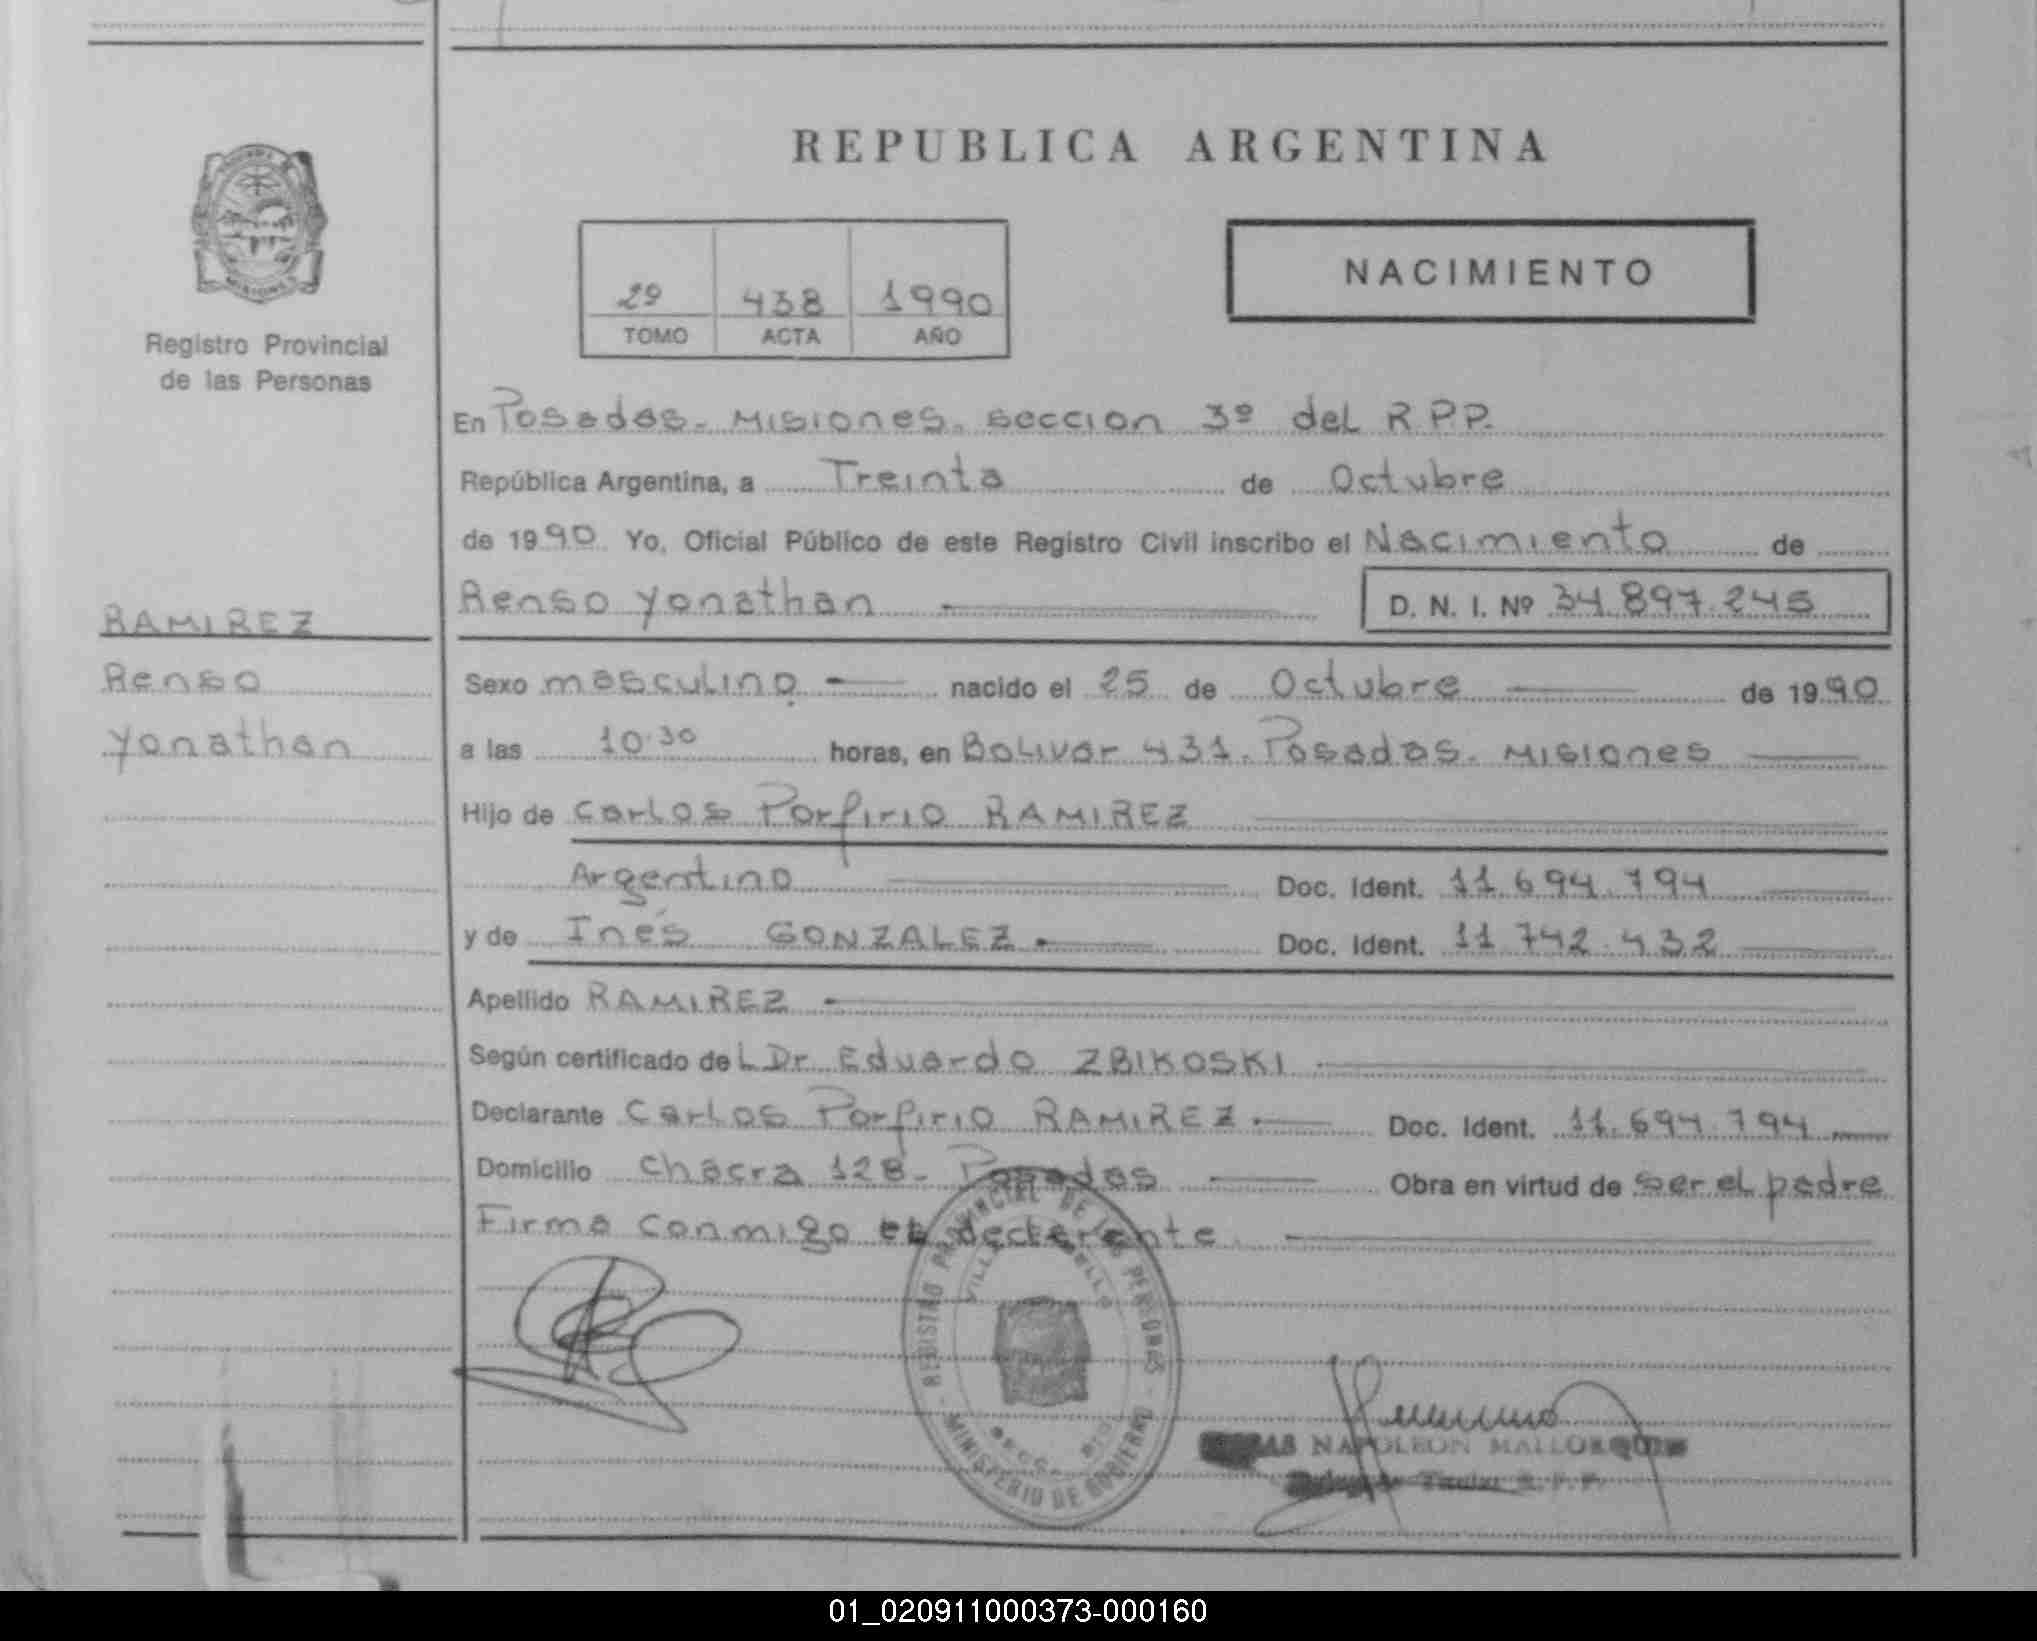 REPUBLICA ARGENTINA
NACIMIENTO
29 438 1990
TOMO ACTA AÑO
Registro Provincial
de las Personas
En Posadas. Misiones. seccion 3º del R.P.P.
República Argentina, a Treinta de Octubre
de 1990. Yo, Oficial Público de este Registro Civil inscribo el Nacimiento de
Renso Yonathan D. N. I. Nº 34.897.245
RAMIREZ
Renso
Yonathan
Sexo masculino nacido el 25 de Octubre de 1990
a las 10.30 horas, en Bolivar 431. Posadas. Misiones
Hijo de Carlos Porfirio RAMIREZ
Argentino Doc. Ident. 11.694.794
y de Inés GONZALEZ Doc. Ident. 11.742.432
Apellido RAMIREZ
Según certificado del Dr. Eduardo ZBIKOSKI
Declarante Carlos Porfirio RAMIREZ Doc. Ident. 11.694.794
Domicilio Chacra 128- Posadas Obra en virtud de ser el padre
Firma conmigo el declarante
REGISTRO PROVINCIAL DE LAS PERSONAS
MINISTERIO DE GOBIERNO
NAPOLEON MALLORQUIN
01_020911000373-000160